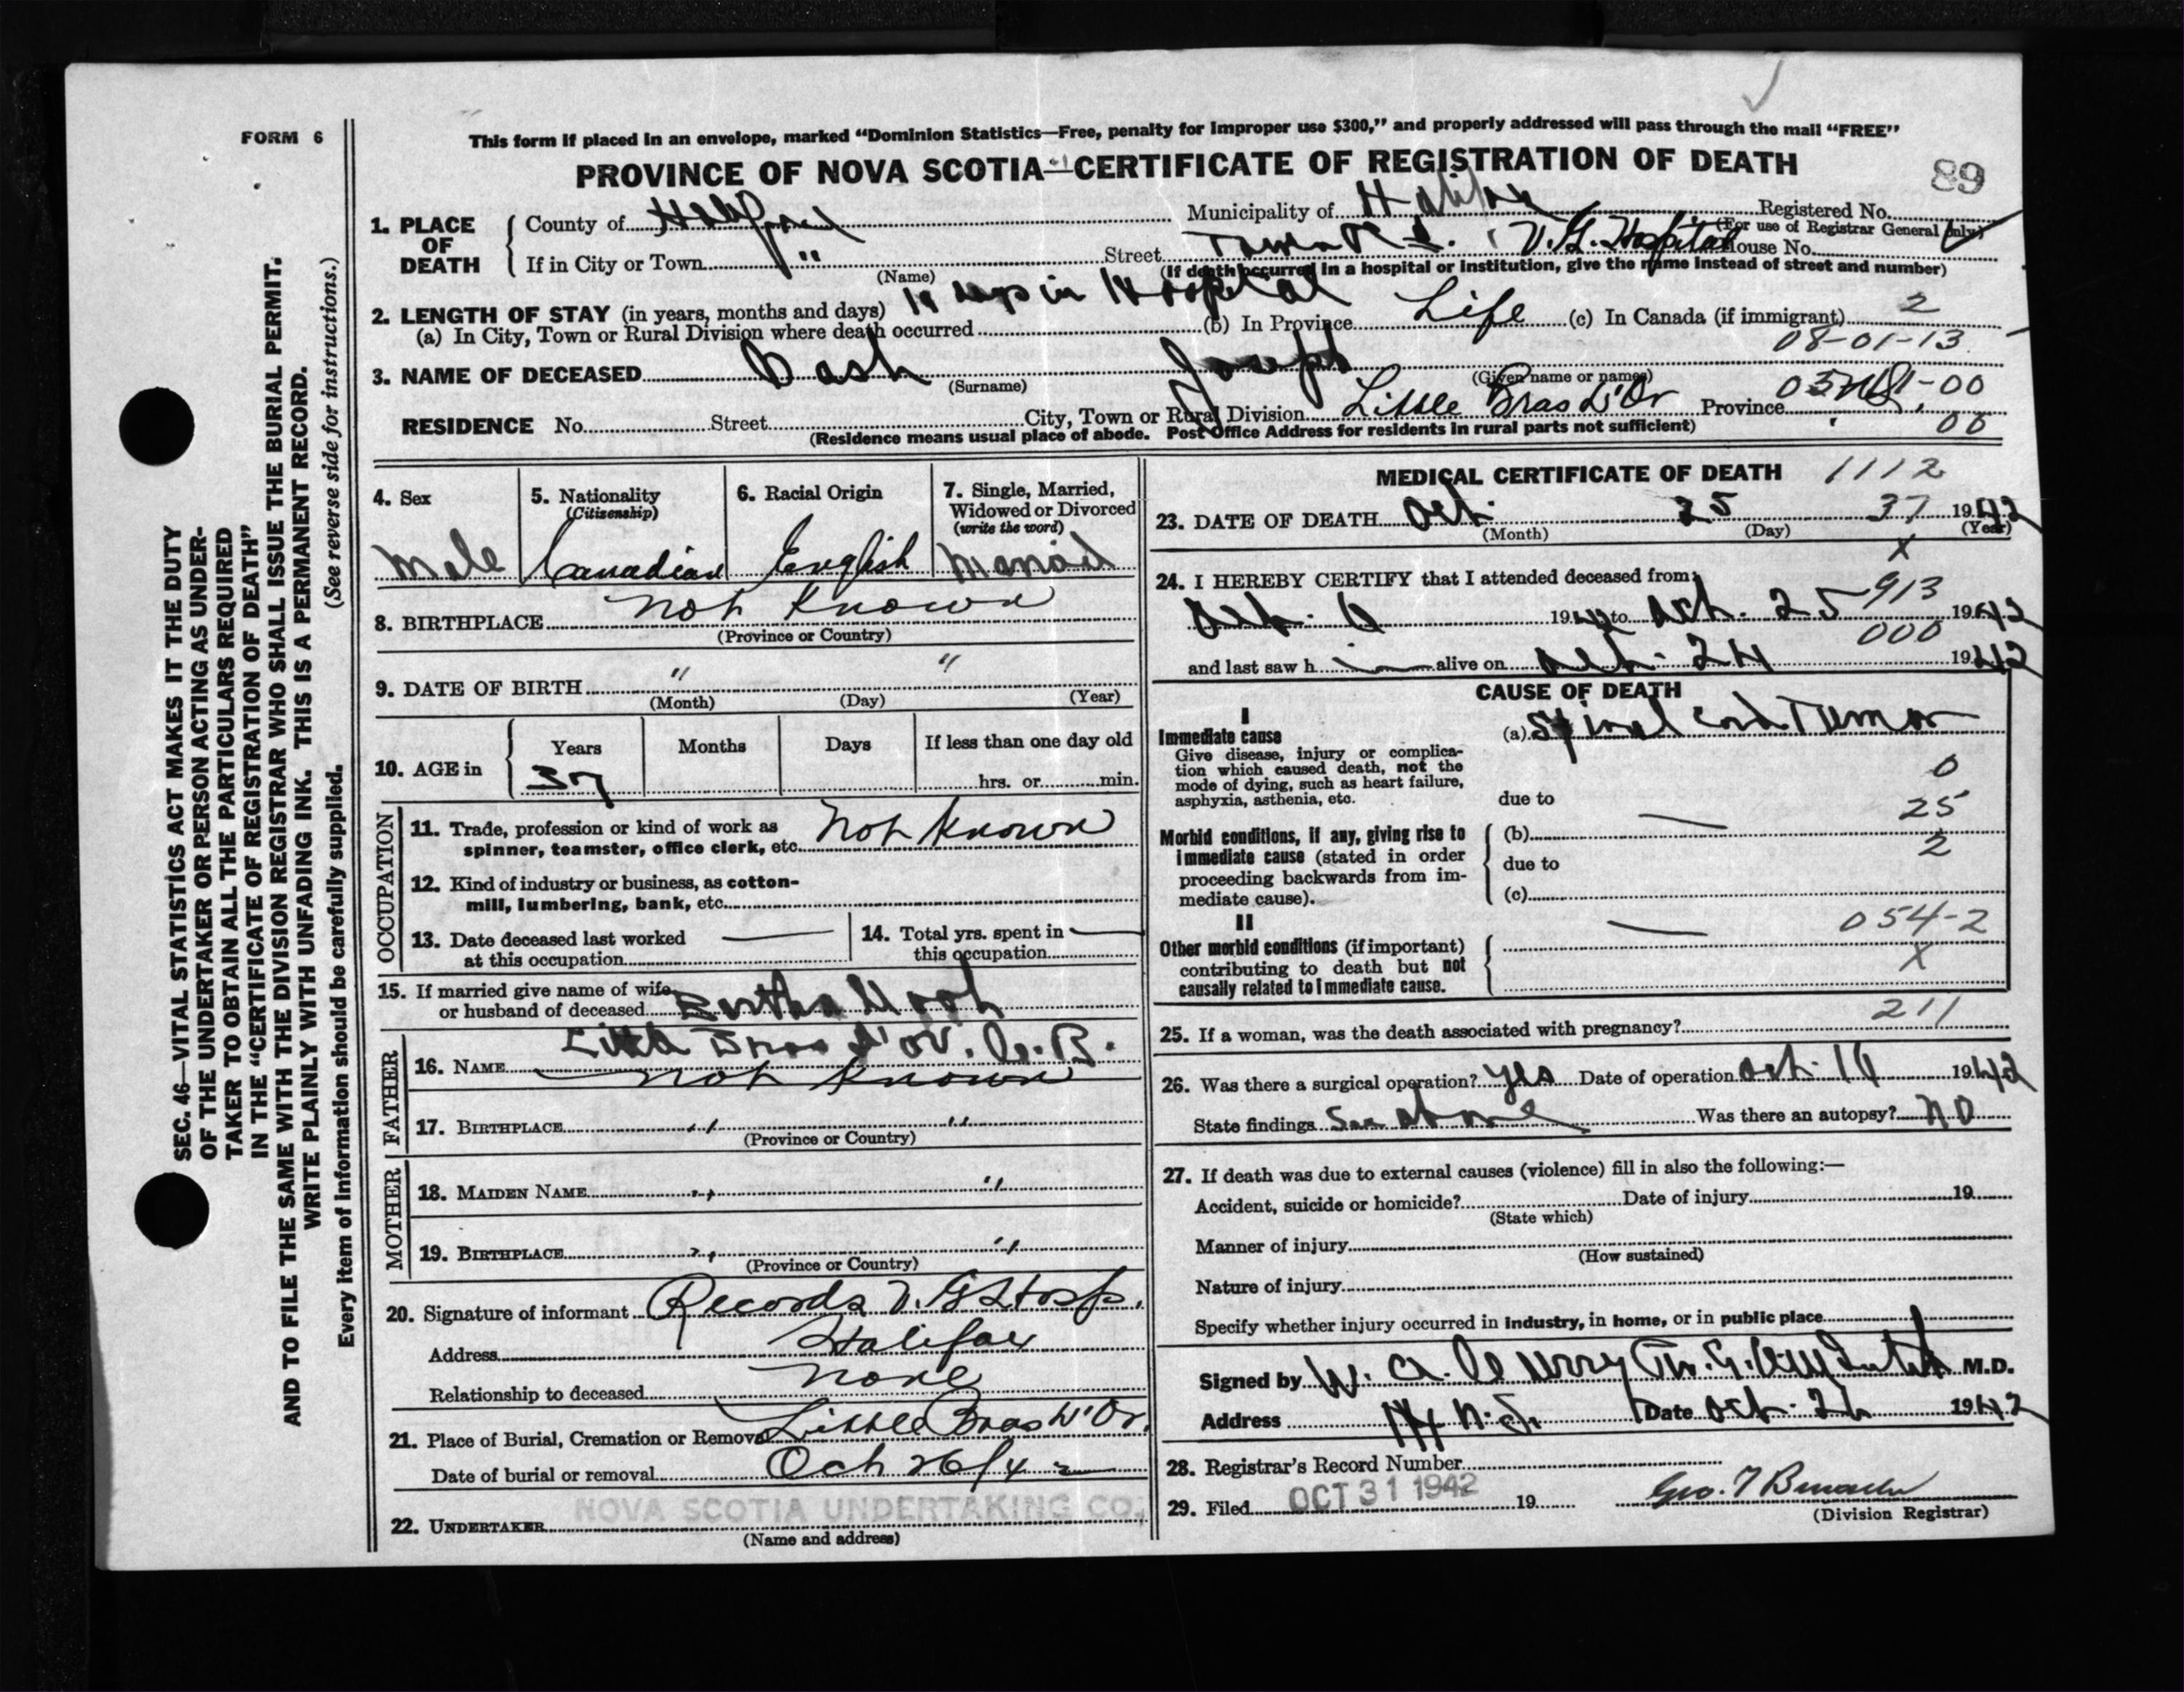 FORM 6
This form if placed in an envelope, marked “Dominion Statistics—Free, penalty for improper use $300,” and properly addressed will pass through the mail “FREE”
PROVINCE OF NOVA SCOTIA—CERTIFICATE OF REGISTRATION OF DEATH
89
1. PLACE OF DEATH
County of Halifax Municipality of Halifax Registered No.
(For use of Registrar General only)
If in City or Town " Street Tower Rd. V.G. Hospital House No.
(Name) (If death occurred in a hospital or institution, give the name instead of street and number)
2. LENGTH OF STAY (in years, months and days) days in Hospital
(a) In City, Town or Rural Division where death occurred (b) In Province Life (c) In Canada (if immigrant) 2
08-01-13
3. NAME OF DECEASED Joseph
(Surname) (Given name or names)
RESIDENCE No. Street City, Town or Rural Division Little Bras D'Or Province N.S.
00
(Residence means usual place of abode. Post Office Address for residents in rural parts not sufficient)
4. Sex
Male
5. Nationality
(Citizenship)
Canadian
6. Racial Origin
English
7. Single, Married,
Widowed or Divorced
(write the word)
Married
8. BIRTHPLACE not known
(Province or Country)
9. DATE OF BIRTH " "
(Month) (Day) (Year)
10. AGE in
Years Months Days If less than one day old
37 hrs. or min.
OCCUPATION
11. Trade, profession or kind of work as
spinner, teamster, office clerk, etc. Not Known
12. Kind of industry or business, as cotton-
mill, lumbering, bank, etc.
13. Date deceased last worked
at this occupation
14. Total yrs. spent in
this occupation
15. If married give name of wife
or husband of deceased Bertha
Little Bras d'Or. C.B.
FATHER
16. NAME not known
17. BIRTHPLACE " "
(Province or Country)
MOTHER
18. MAIDEN NAME " "
19. BIRTHPLACE " "
(Province or Country)
20. Signature of informant Records V. G Hosp.
Address Halifax
Relationship to deceased none
21. Place of Burial, Cremation or Removal Little Bras D'Or.
Date of burial or removal Oct 26/42
22. UNDERTAKER NOVA SCOTIA UNDERTAKING CO.
(Name and address)
MEDICAL CERTIFICATE OF DEATH 1112
23. DATE OF DEATH Oct. 25 37 1942
(Month) (Day) (Year)
X
24. I HEREBY CERTIFY that I attended deceased from:
913
Oct. 6 1942 to Oct. 25 1942
000
and last saw h im alive on Oct. 24 1942
CAUSE OF DEATH
I
Immediate cause
Give disease, injury or complica-
tion which caused death, not the
mode of dying, such as heart failure,
asphyxia, asthenia, etc.
(a) Spinal cord Tumor
0
due to
25
Morbid conditions, if any, giving rise to
immediate cause (stated in order
proceeding backwards from im-
mediate cause).
(b)
2
due to
(c)
II
054-2
Other morbid conditions (if important)
contributing to death but not
causally related to immediate cause.
X
211
25. If a woman, was the death associated with pregnancy?
26. Was there a surgical operation? Yes Date of operation Oct. 1942
State findings See above Was there an autopsy? no
27. If death was due to external causes (violence) fill in also the following:—
Accident, suicide or homicide? Date of injury 19
(State which)
Manner of injury
(How sustained)
Nature of injury
Specify whether injury occurred in industry, in home, or in public place
Signed by W. A. M.D.
Address Date Oct. 1942
28. Registrar's Record Number
29. Filed OCT 31 1942 19 Geo. T
(Division Registrar)
SEC. 46—VITAL STATISTICS ACT MAKES IT THE DUTY
OF THE UNDERTAKER OR PERSON ACTING AS UNDER-
TAKER TO OBTAIN ALL THE PARTICULARS REQUIRED
IN THE “CERTIFICATE OF REGISTRATION OF DEATH”
AND TO FILE THE SAME WITH THE DIVISION REGISTRAR WHO SHALL ISSUE THE BURIAL PERMIT.
WRITE PLAINLY WITH UNFADING INK. THIS IS A PERMANENT RECORD.
Every item of information should be carefully supplied. (See reverse side for instructions.)